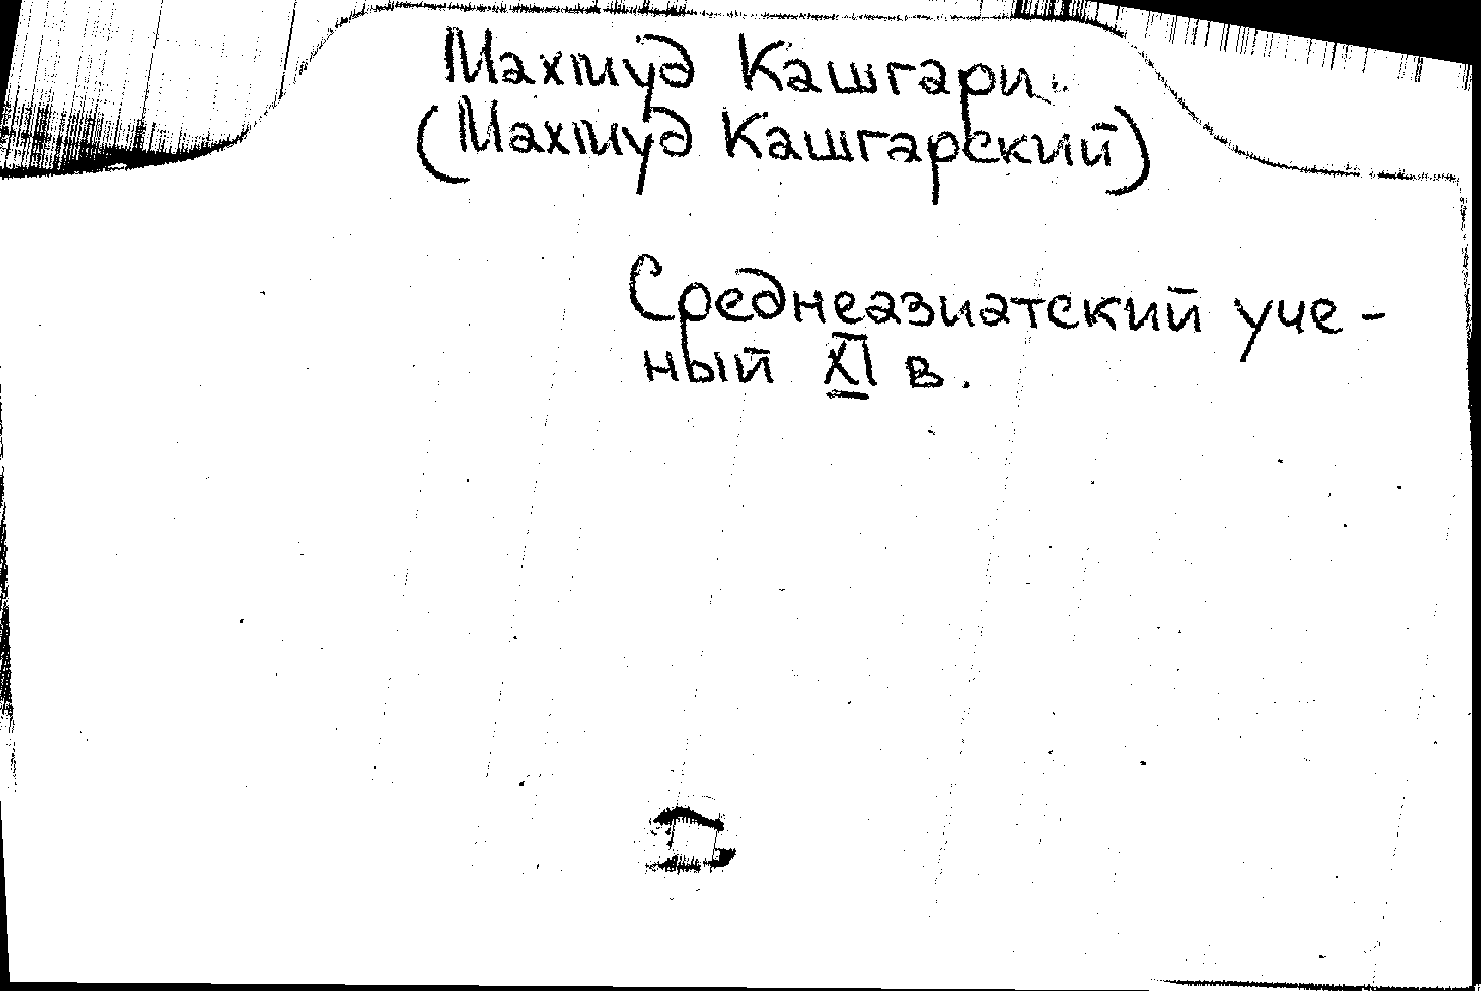 Махмуд Кашгари.
(Махмуд Кашгарский)
Среднеазиатский уче-
ный XI в.